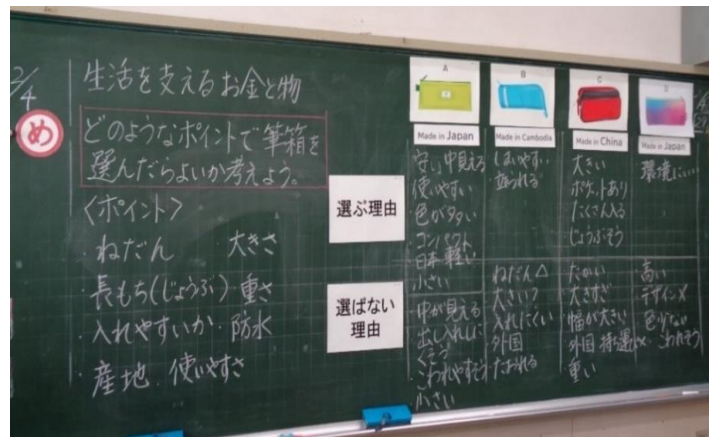 2/4
生活を支えるお金と物
め
どのようなポイントで筆箱を
選んだらよいか考えよう。
〈ポイント〉
・ねだん 大きさ
・長もち(じょうぶ) 重さ
・入れやすいか ・防水
・産地 使いやすさ
選ぶ理由
選ばない
理由
A
Made in Japan
安い 中見える
使いやすい
色が多い
・コンパクト
日本 軽い
小さい
・中が見える
出し入れしに
くそう
・こわれやすそう
小さい
B
Made in Cambodia
ねだん△
大きい?
入れにくい
外国
たおれる
C
Made in China
大きい
ポケットあり
たくさん入る
じょうぶそう
たかい
大きすぎ
幅が大きい
外国
重い
D
Made in Japan
環境に
高い
デザイン×
色少ない
こわれそう